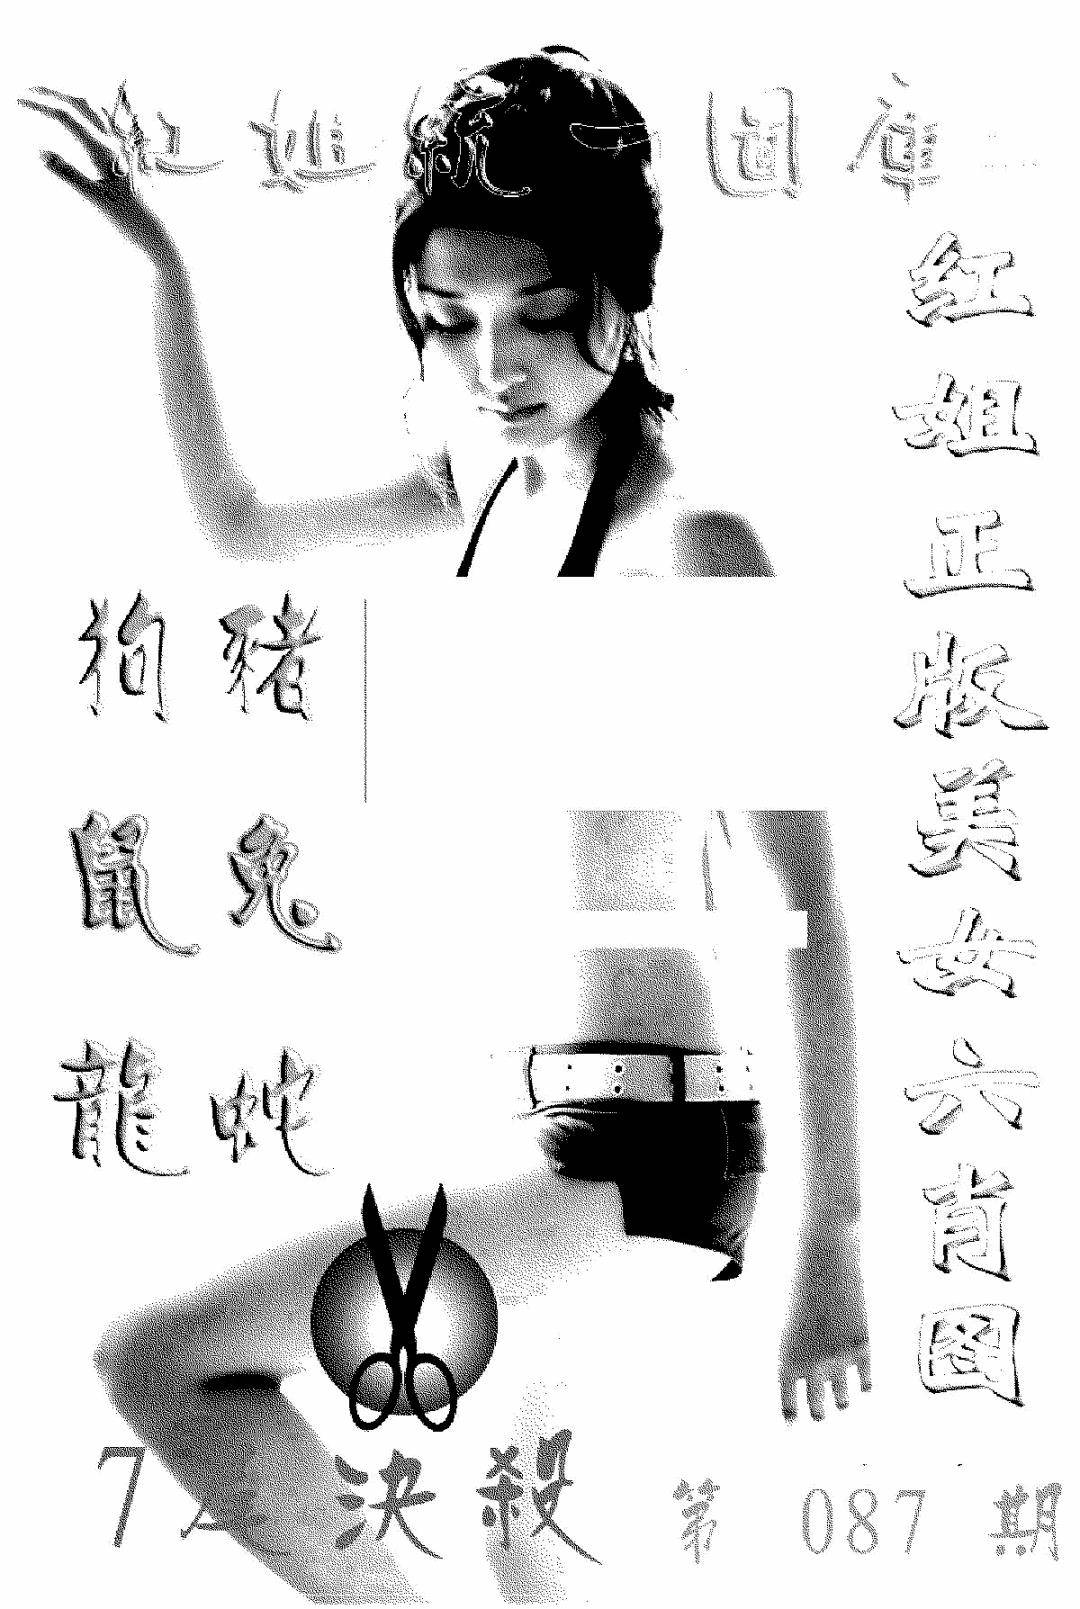 紅姐統一圖庫
紅姐正版美女六肖圖
狗 豬
鼠 兔
龍 蛇
7尾 決殺 第 087 期